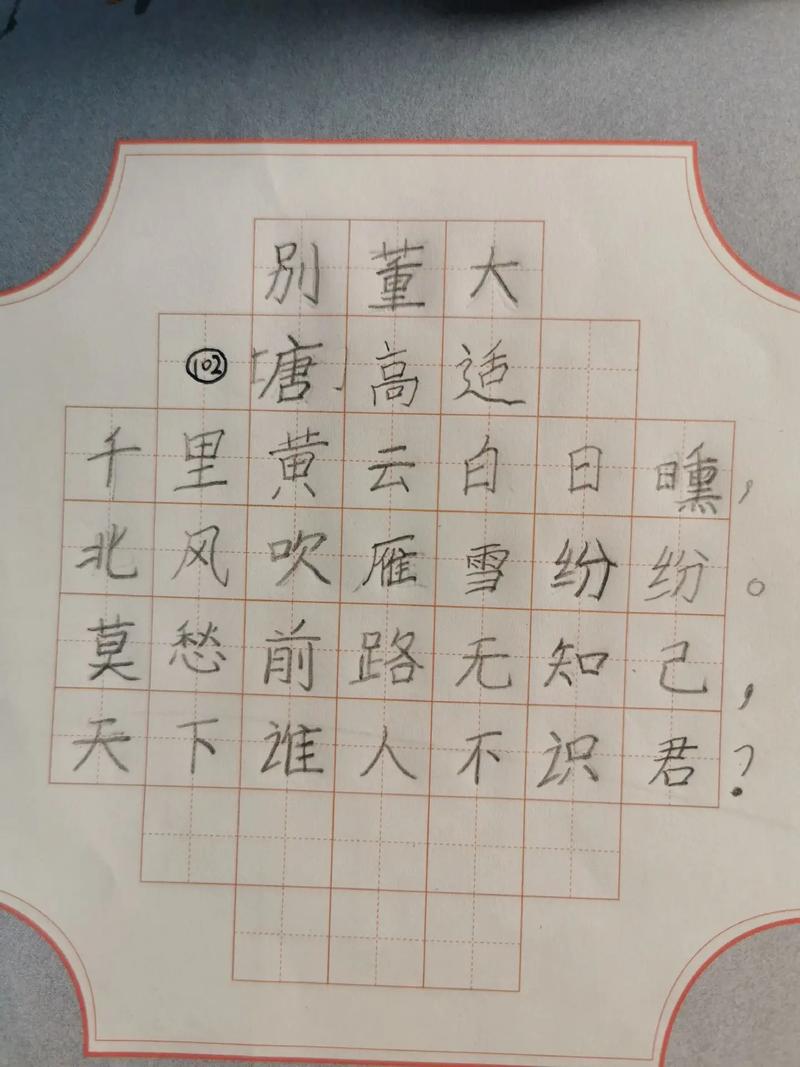 别董大
102 [唐]高适
千里黄云白日曛，
北风吹雁雪纷纷。
莫愁前路无知己，
天下谁人不识君？